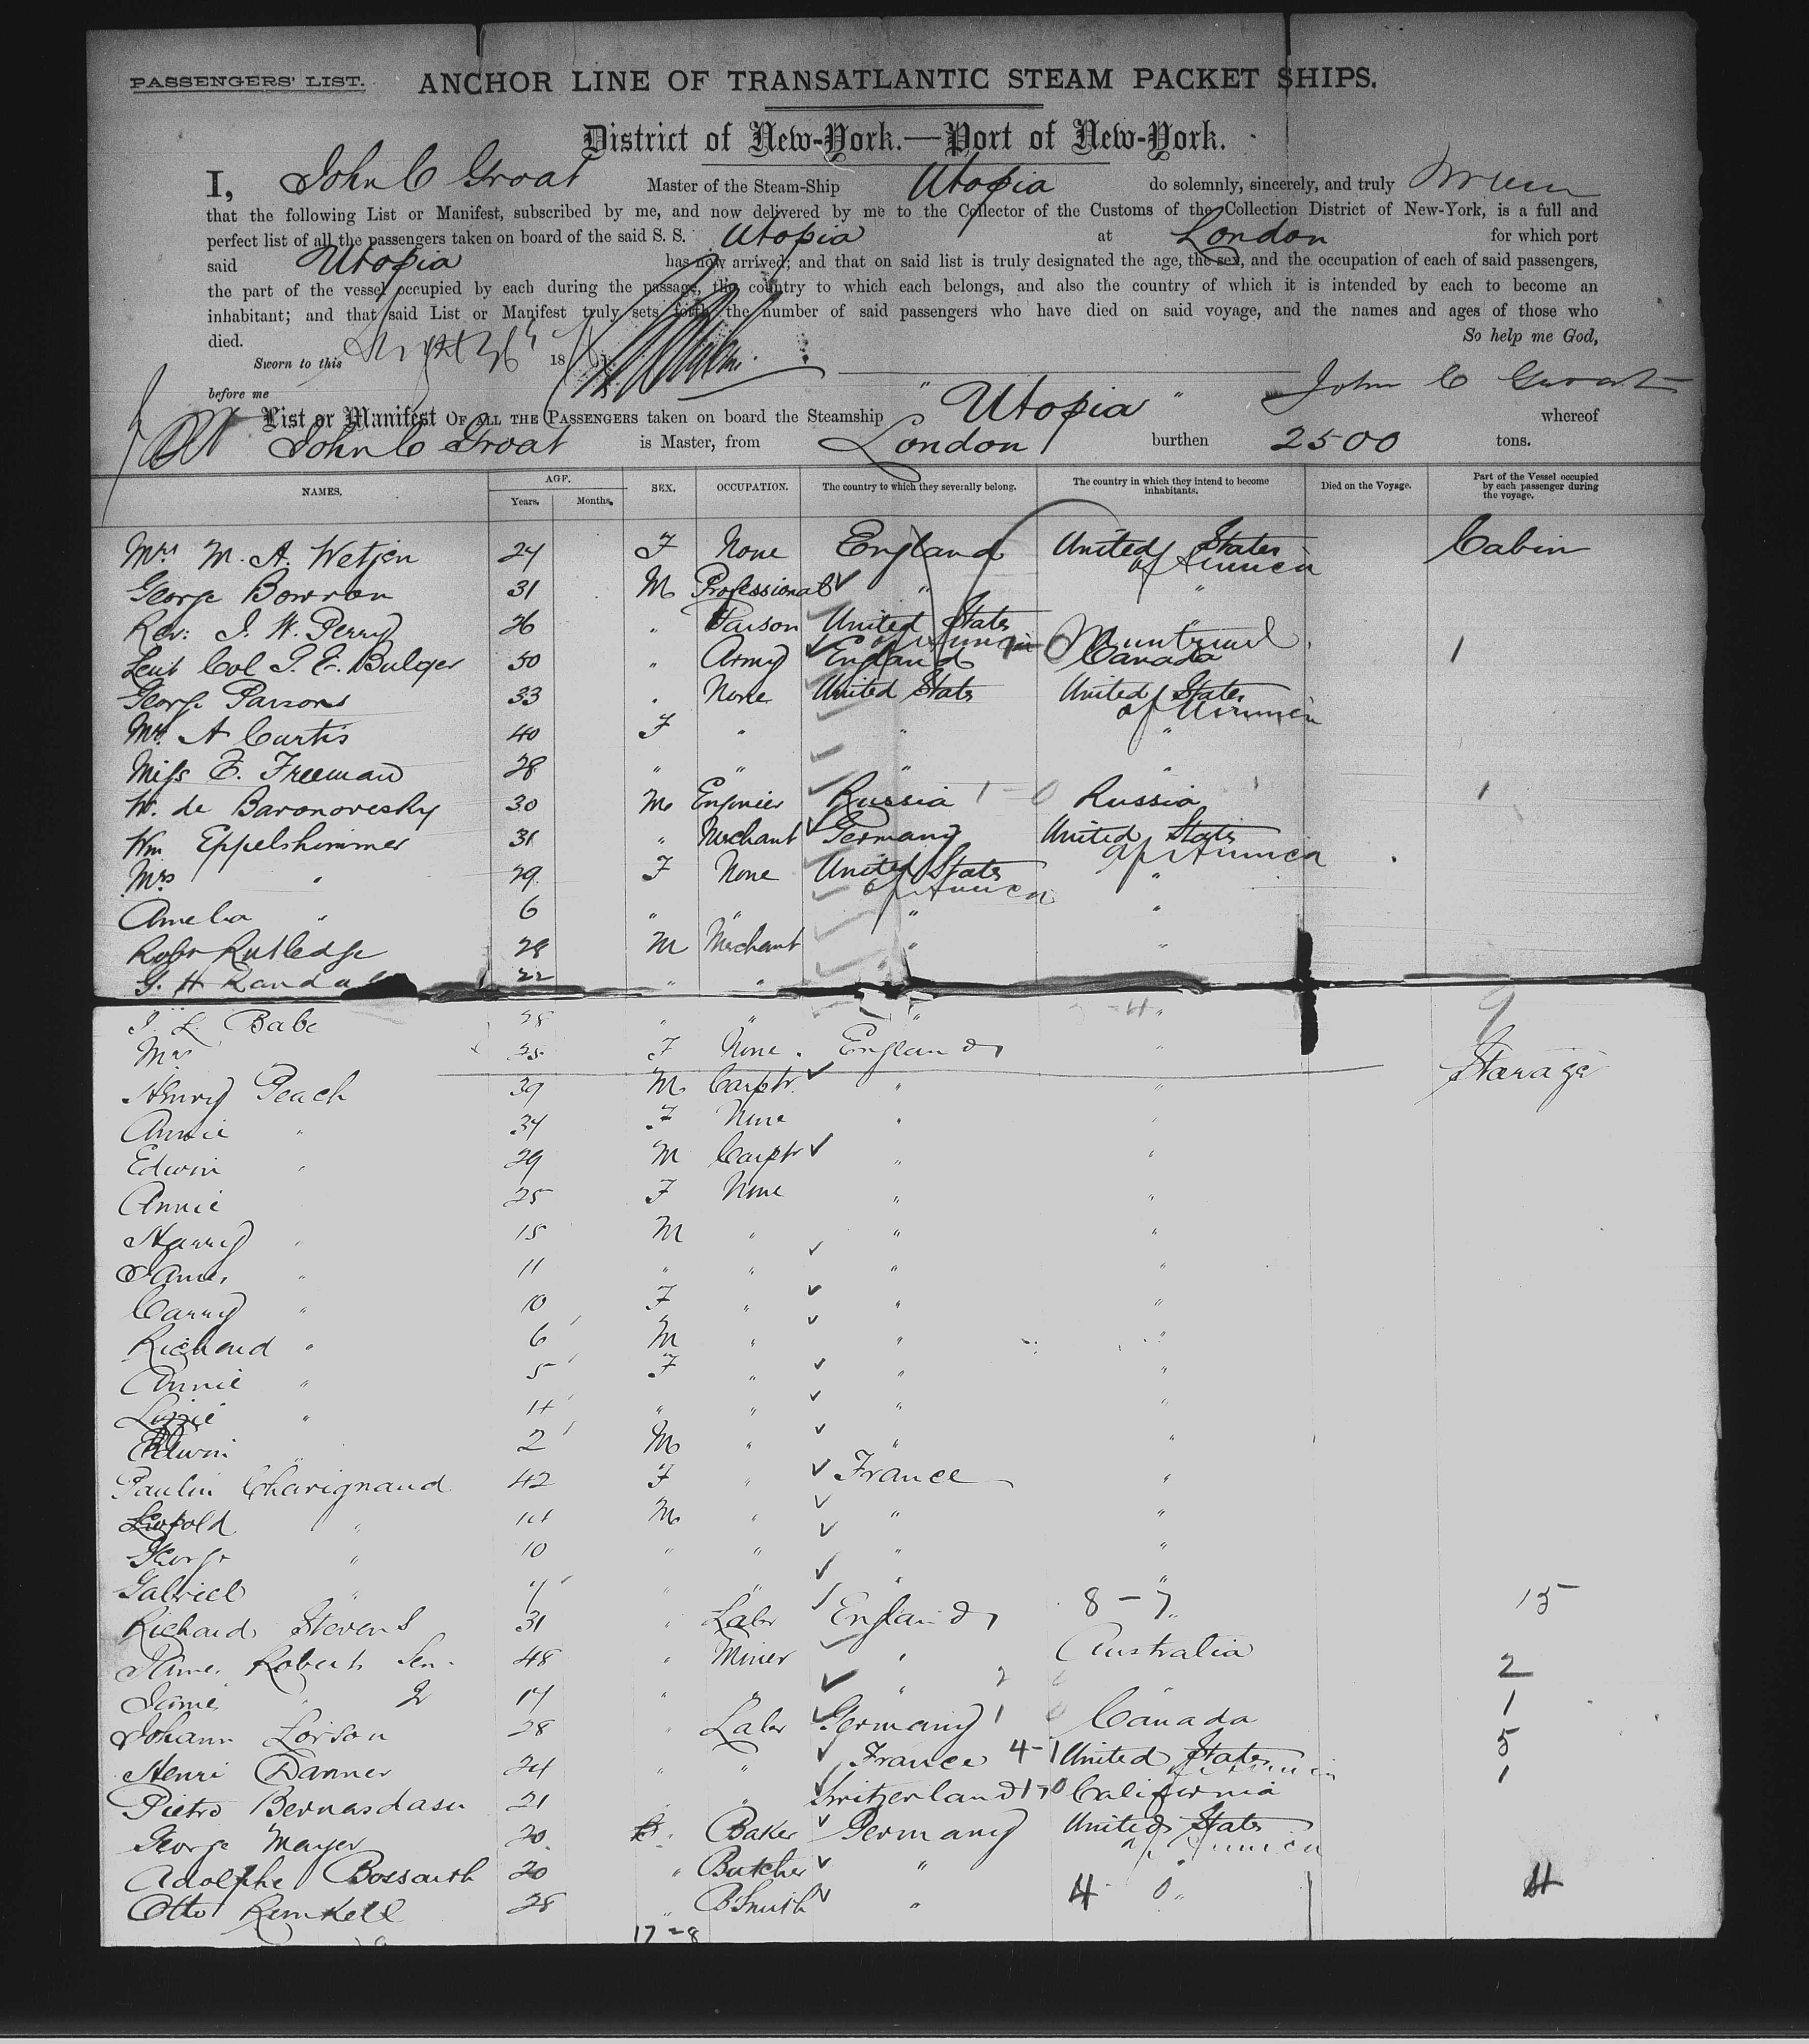 PASSENGERS' LIST. ANCHOR LINE OF TRANSATLANTIC STEAM PACKET SHIPS.
District of New-York.—Port of New-York.
I, John C Groat Master of the Steam-Ship Utopia do solemnly, sincerely, and truly
that the following List or Manifest, subscribed by me, and now delivered by me to the Collector of the Customs of the Collection District of New-York, is a full and
perfect list of all the passengers taken on board of the said S. S. Utopia at London for which port
said Utopia has now arrived; and that on said list is truly designated the age, the sex, and the occupation of each of said passengers,
the part of the vessel occupied by each during the passage, the country to which each belongs, and also the country of which it is intended by each to become an
inhabitant; and that said List or Manifest truly sets forth the number of said passengers who have died on said voyage, and the names and ages of those who
died. So help me God,
Sworn to this 18
before me John C Groat
List or Manifest OF ALL THE PASSENGERS taken on board the Steamship " Utopia " whereof
John C Groat is Master, from London burthen 2500 tons.
NAMES. AGE. Years. Months. SEX. OCCUPATION. The country to which they severally belong. The country in which they intend to become inhabitants. Died on the Voyage. Part of the Vessel occupied by each passenger during the voyage.
Mrs M. A. Wetjen 24 F None England United States of America Cabin
George Bowron 31 M Professional " "
Rev: J. W. Perry 26 " Parson United States of America "
Leut Col G. E. Bulger 50 " Army England Montreal Canada 1
George Parsons 33 " None United States United States of America
Mrs A Curtis 40 F " " "
Miss E. Freeman 28 " " " "
W. de Baronovesky 30 M Enginier Russia 1-0 Russia 1
Wm Eppelshimmer 31 " Merchant Germany United States of America
Mrs " 29 F None United States of America "
Amelia " 6 " " " "
Robt Rutledge 28 M Merchant " "
G. H. Randa 22 " "
J. L. Babe 28 " " " " 9
Mrs 25 F None England "
Henry Peach 39 M Carptr " " Starage
Annie " 34 F None " "
Edwin " 29 M Carptr " "
Annie 25 F None " "
Harry " 15 M " " "
James " 11 " " " "
Carry " 10 F " " "
Richard " 6 M " " "
Annie " 5 F " " "
Lizzie " 4 " " " "
Edwin " 2 M " " "
Paulin Charignaud 42 F " France "
Leopold " M " " "
George " 10 " " " "
Gabriel " 7 " " " "
Richard Stevens 31 " Labr England 8-7 " 15
James Roberts Sen. 48 " Miner " Australia
James " Jr 17 " " " 2 2
Johann Lorson 28 " Labr Germany 1 Canada 1
Henri Danner 24 " " France 4-1 United States of America 5
Pietro 21 " " Switzerland 1-0 California 1
George Mayer 20 " Baker Germany United States of America
Adolphe Bossarth 20 " Butcher " "
Otto Remkell 28 " BSmith " 4 0 " 4
17=8